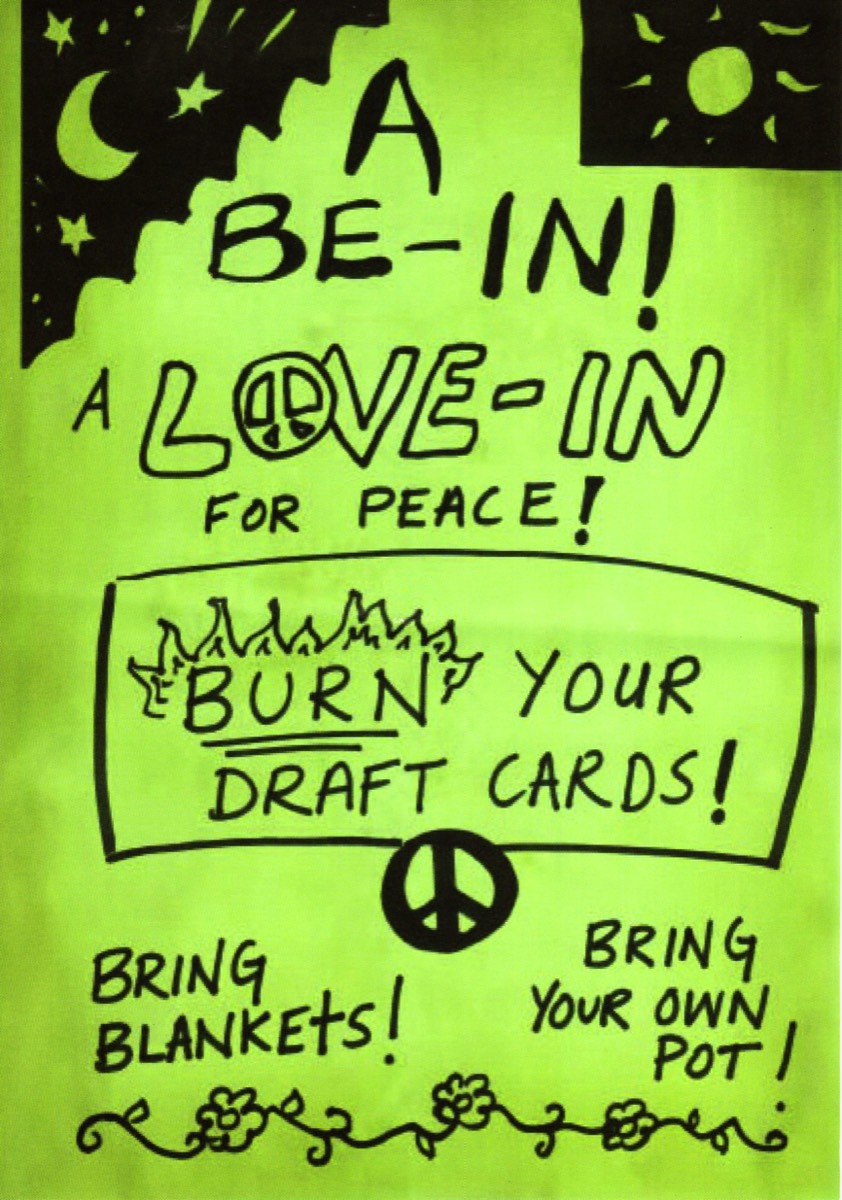 A
BE-IN!
A LOVE-IN
FOR PEACE!
BURN YOUR
DRAFT CARDS!
BRING
BLANKETS!
BRING
YOUR OWN
POT!